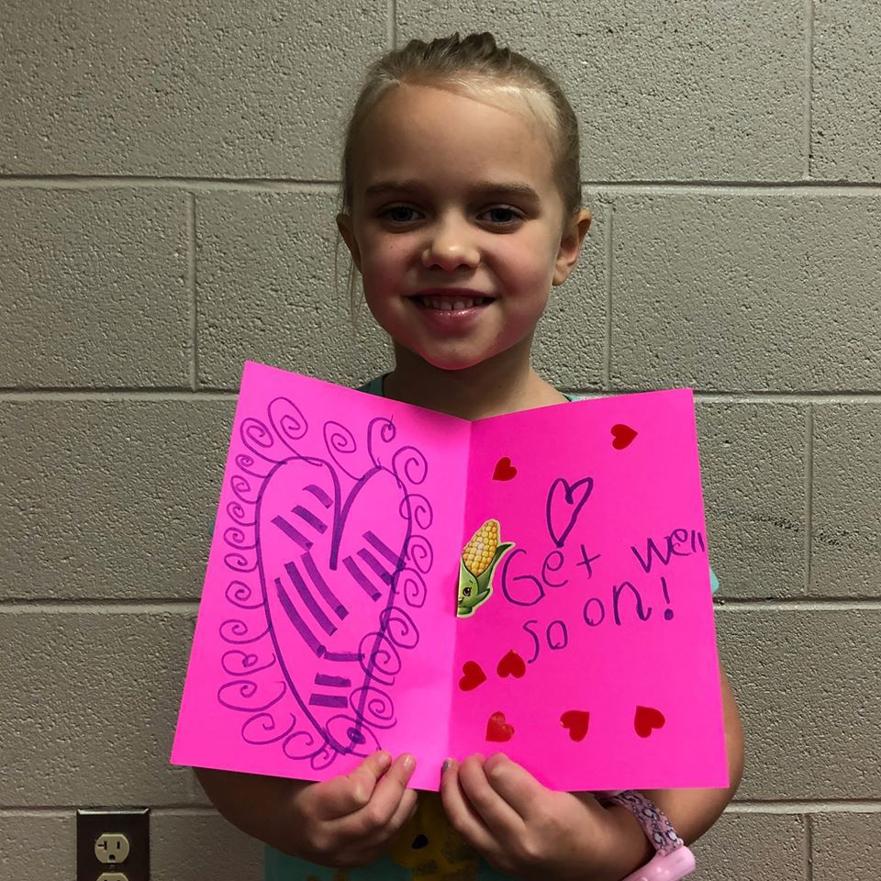 Get well
soon!